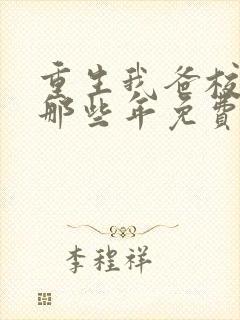 重生我爸校
那些年免費
李程祥